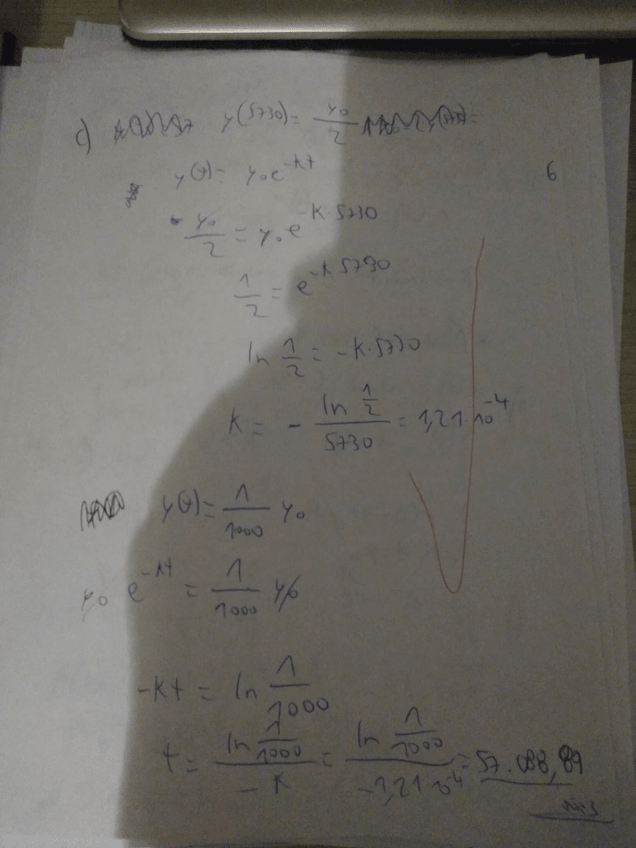 c) y(5730) = y₀/2
6
y(t) = y₀e^-kt
y₀/2 = y₀ e^-k·5730
1/2 = e^-k 5730
ln 1/2 = -k·5730
k = - ln 1/2 / 5730 = 1,21·10^-4
y(t) = 1/1000 y₀
y₀ e^-kt = 1/1000 y₀
-kt = ln 1/1000
t = ln 1/1000 / -k = ln 1/1000 / -1,21·10^-4 = 57.088,89